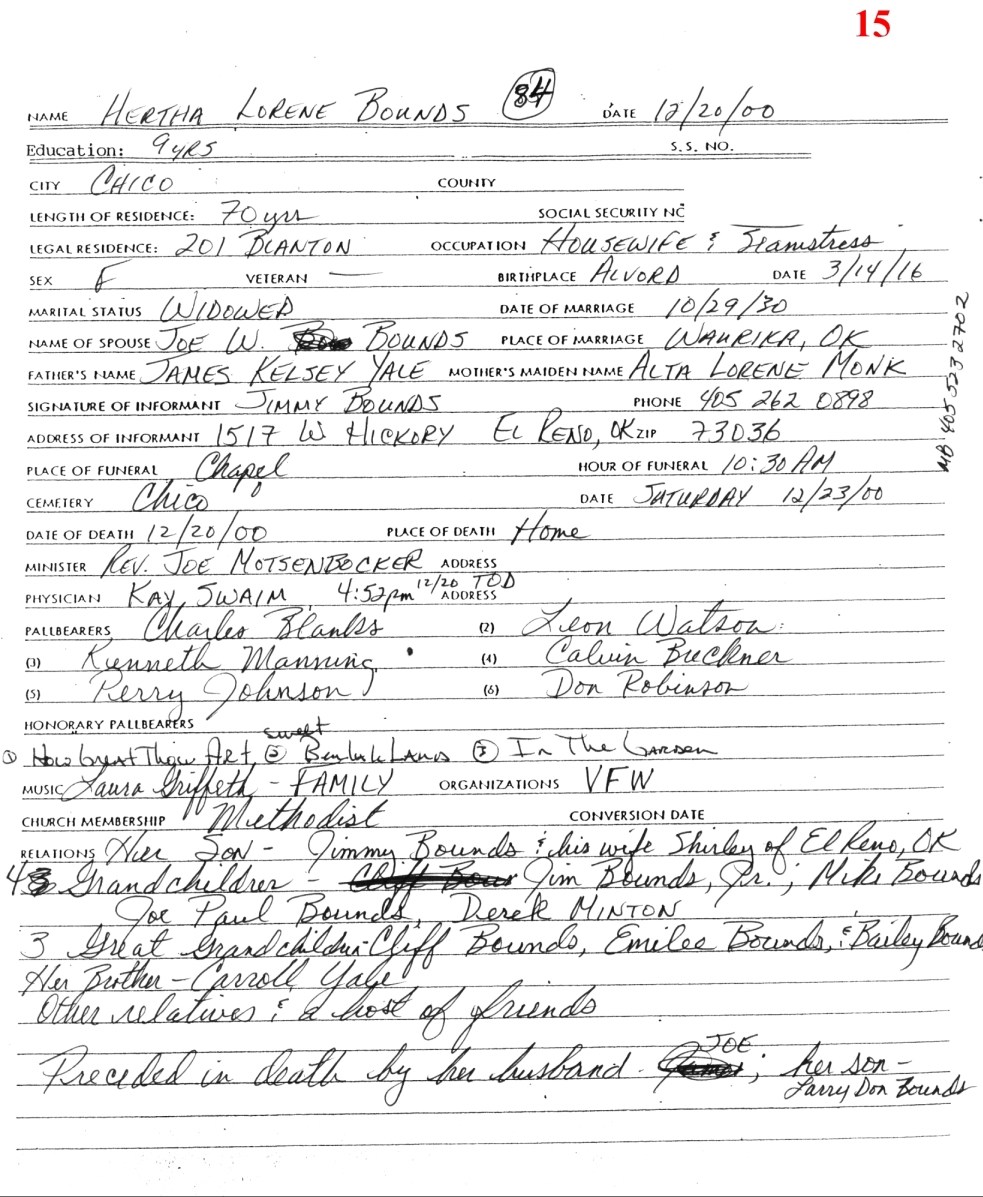 15
NAME HERTHA LORENE BOUNDS 84 DATE 12/20/00
Education: 9 yrs S.S. NO.
CITY CHICO COUNTY
LENGTH OF RESIDENCE: 70 yrs SOCIAL SECURITY NC
LEGAL RESIDENCE: 201 BLANTON OCCUPATION HOUSEWIFE & Seamstress
SEX F VETERAN — BIRTHPLACE ALVORD DATE 3/14/16
MARITAL STATUS WIDOWED DATE OF MARRIAGE 10/29/30
NAME OF SPOUSE JOE W. BOUNDS PLACE OF MARRIAGE WAURIKA, OK
FATHER'S NAME JAMES KELSEY YALE MOTHER'S MAIDEN NAME ALTA LORENE MONK
SIGNATURE OF INFORMANT JIMMY BOUNDS PHONE 405 262 0898
ADDRESS OF INFORMANT 1517 W HICKORY EL RENO, OK ZIP 73036
MB 405 523 2702
PLACE OF FUNERAL Chapel HOUR OF FUNERAL 10:30 AM
CEMETERY Chico DATE SATURDAY 12/23/00
DATE OF DEATH 12/20/00 PLACE OF DEATH Home
MINISTER REV. JOE MOTSENBOCKER ADDRESS
PHYSICIAN KAY SWAIM 4:52pm 12/20 TOD ADDRESS
PALLBEARERS Charles Blanks (2) Leon Watson
(3) Kenneth Manning (4) Calvin Buckner
(5) Perry Johnson (6) Don Robinson
HONORARY PALLBEARERS
① How Great Thow Art, ② sweet Beulah Lands ③ In The Garden
MUSIC Laura Griffeth - FAMILY ORGANIZATIONS VFW
CHURCH MEMBERSHIP Methodist CONVERSION DATE
RELATIONS Her Son - Jimmy Bounds & his wife Shirley of El Reno, OK
4 Grandchildren - Jim Bounds, Jr.; Mike Bounds
Joe Paul Bounds, Derek MINTON
3 Great Grandchildren - Cliff Bounds, Emilee Bounds, & Bailey Bounds
Her Brother - Carroll Yale
Other relatives & a host of friends
Preceded in death by her husband - JOE; her son -
Larry Don Bounds